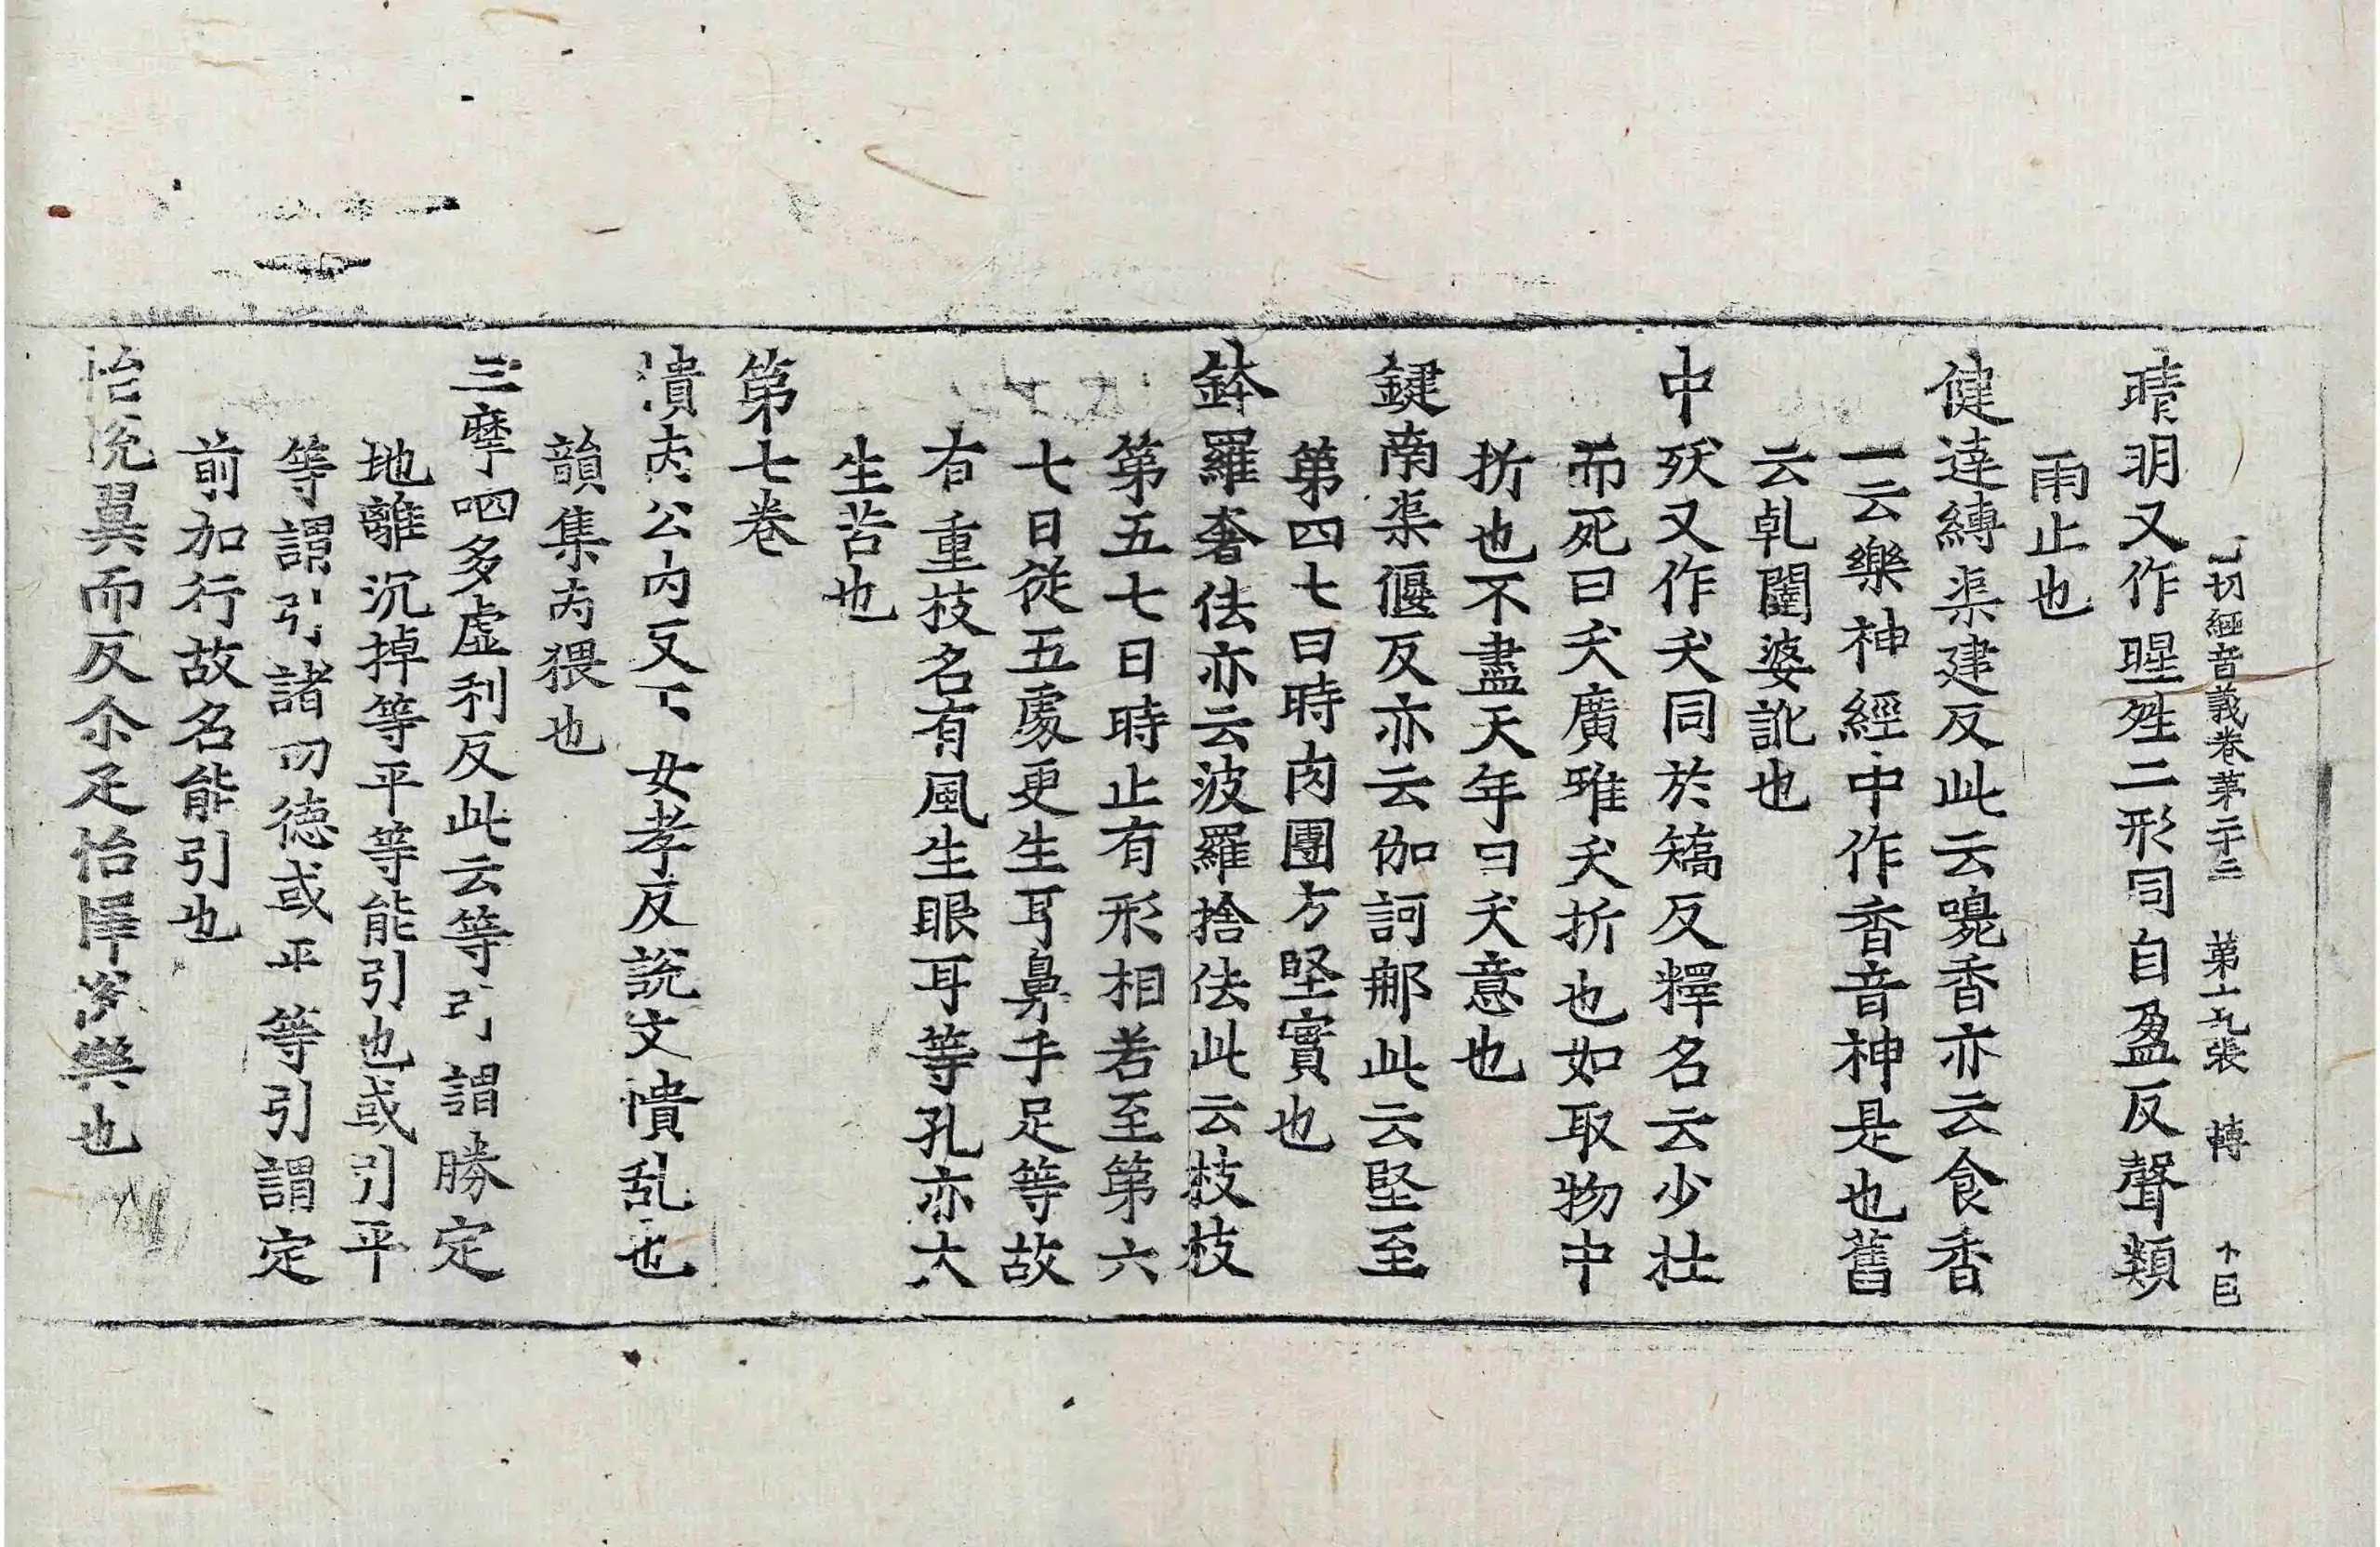 切經音義卷苐二十二 苐十九張 轉
晴明又作暒殅二形同自盈反聲類
雨止也
健達縛渠建反此云嗅香亦云食香
一云樂神經中作香音神是也舊
云乹闥婆訛也
中殀又作夭同於矯反釋名云少壯
而死曰夭廣雅夭折也如取物中
折也不盡天年曰夭意也
鍵南渠偃反亦云伽訶郍此云堅至
第四七日時肉團方堅實也
鉢羅奢佉亦云波羅捨佉此云枝枝
第五七日時止有形相若至第六
七日從五處更生耳鼻手足等故
有重枝名有風生眼耳等孔亦大
生苦也
第七卷
憒丙公內反下女孝反說文憒乱也
韻集丙猥也
三摩呬多虛利反此云等引謂勝定
地離沉掉等平等能引也或引平
等謂引諸功德或平等引謂定
前加行故名能引也
怡悅翼而反尒疋怡懌樂也